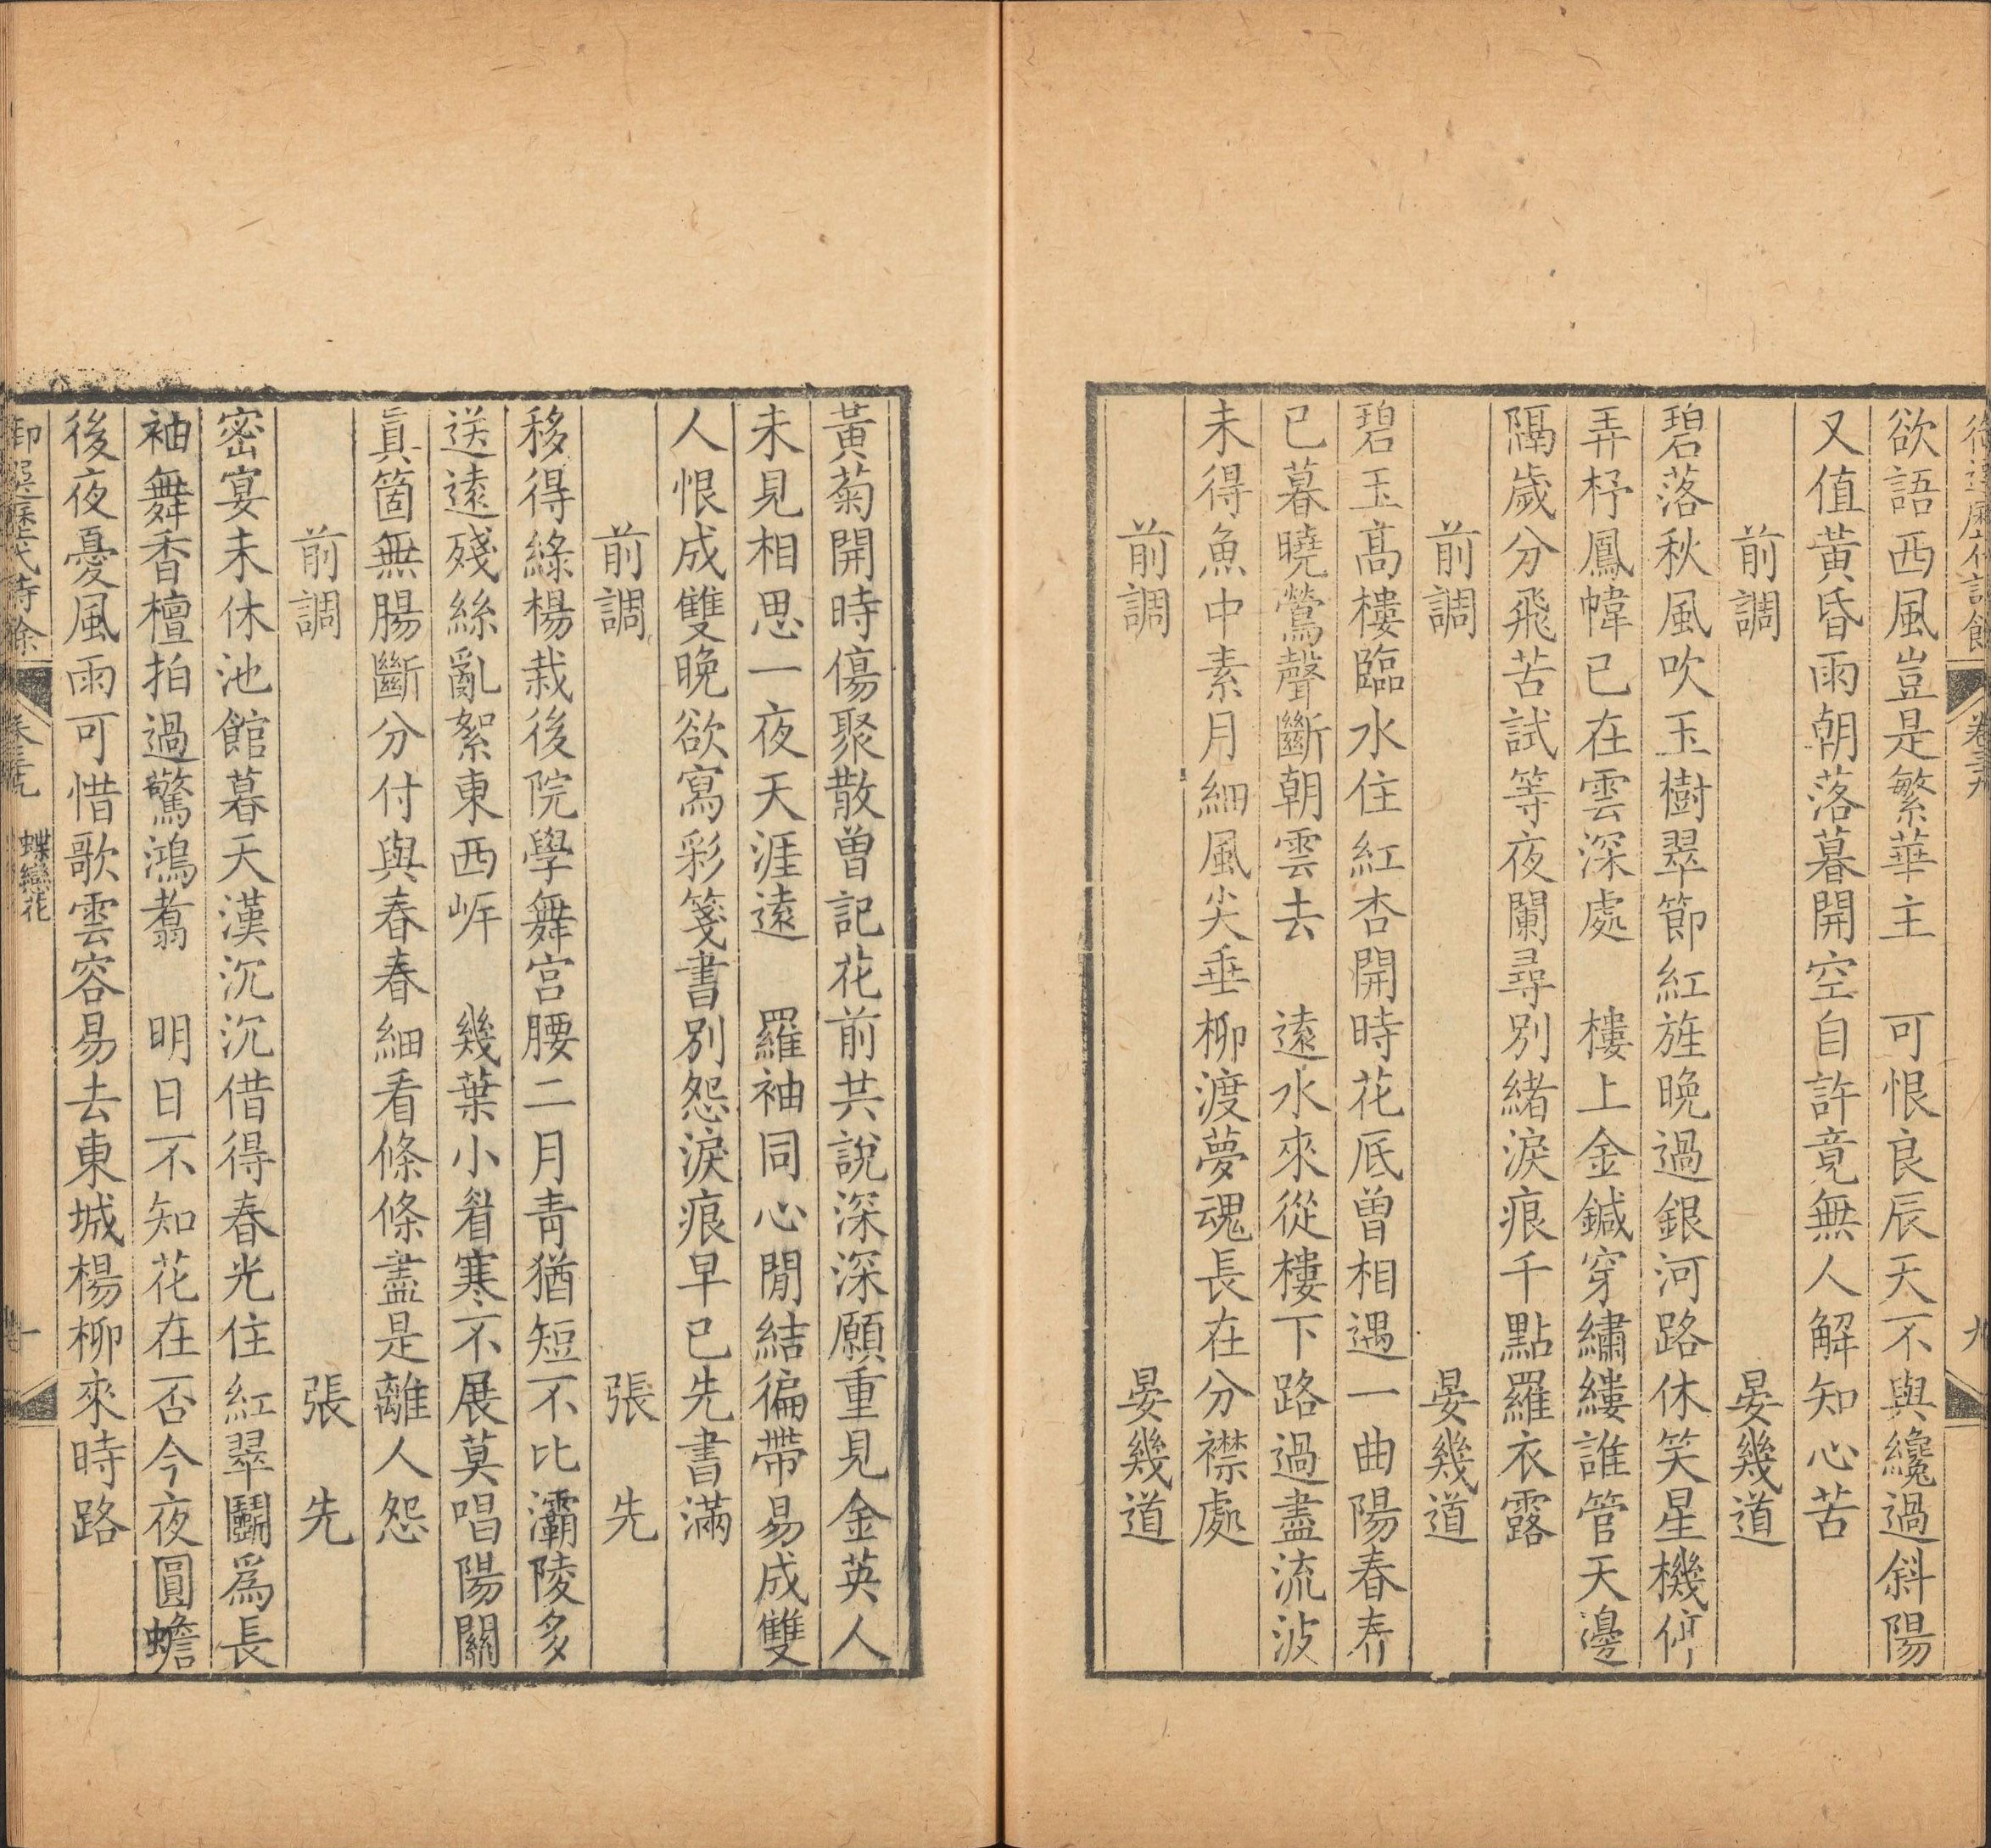 欲語西風豈是繁華主　可恨良辰天不與纔過斜陽
又值黃昏雨朝落暮開空自許竟無人解知心苦
前調　晏幾道
碧落秋風吹玉樹翠節紅旌晚過銀河路休笑星機停
弄杼鳳幃已在雲深處　樓上金鍼穿繡縷誰管天邊
隔歲分飛苦試等夜闌尋別緒淚痕千點羅衣露
前調　晏幾道
碧玉高樓臨水住紅杏開時花底曾相遇一曲陽春春
已暮曉鶯聲斷朝雲去　遠水來從樓下路過盡流波
未得魚中素月細風尖垂柳渡夢魂長在分襟處
前調　晏幾道
黃菊開時傷聚散曾記花前共說深深願重見金英人
未見相思一夜天涯遠　羅袖同心閒結徧帶易成雙
人恨成雙晚欲寫彩箋書別怨淚痕早已先書滿
前調　張先
移得綠楊栽後院學舞宮腰二月青猶短不比灞陵多
送遠殘絲亂絮東西岸　幾葉小眉寒不展莫唱陽關
真箇無腸斷分付與春春細看條條盡是離人怨
前調　張先
密宴未休池館暮天漢沉沉借得春光住紅翠鬭爲長
袖舞香檀拍過驚鴻翥　明日不知花在否今夜圓蟾
後夜憂風雨可惜歌雲容易去東城楊柳來時路
蝶戀花